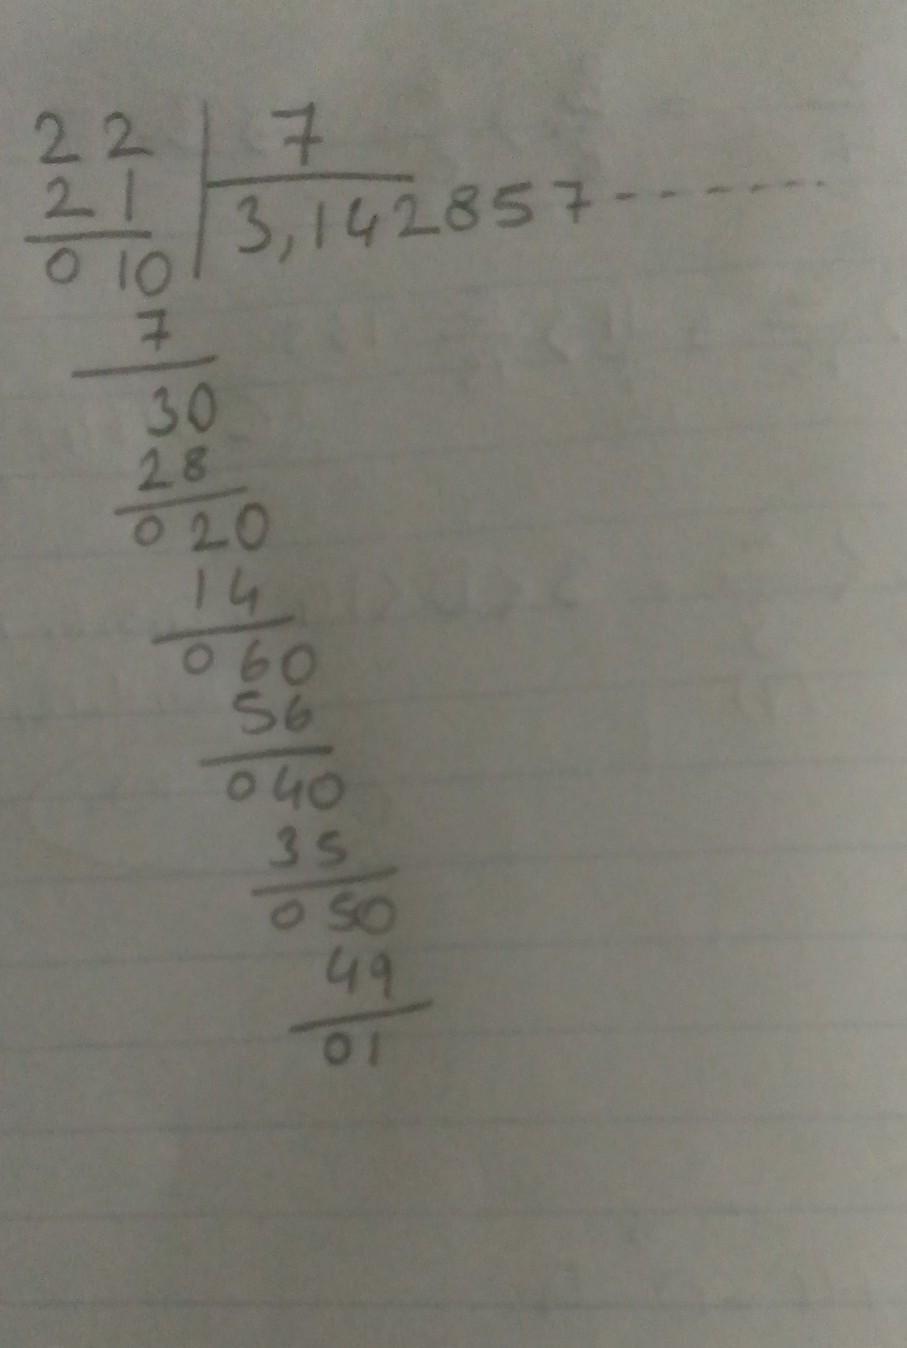 22 | 7
21 | 3,142857-------
0 10
7
30
28
0 20
14
0 60
56
0 40
35
0 50
49
01